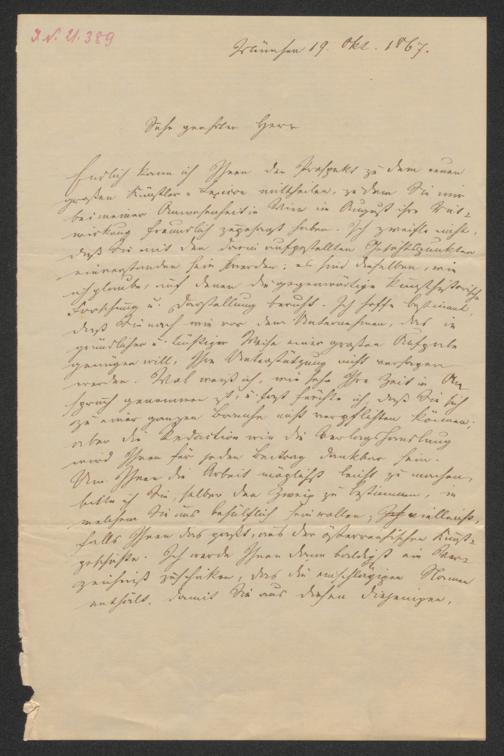 I.N. 21.389
München 19. Okt. 1867.
Sehr geehrter Herr
Endlich kann ich Ihnen den Prospekt zu dem neuen
großen Künstler-Lexicon mittheilen, zu dem Sie mir
bei meiner Anwesenheit in Wien im August Ihre Mit-
wirkung freundlich zugesagt haben. Ich zweifle nicht,
daß Sie mit den darin aufgestellten Gesichtspunkten
einverstanden sein werden; es sind dieselben, wie
ich glaube, auf denen die gegenwärtige kunsthistorische
Forschung u. Darstellung beruht. Ich hoffe bestimmt,
daß Sie nach wie vor dem Unternehmen, das in
gründlicher u. tüchtiger Weise einer großen Aufgabe
genügen will, Ihre Unterstützung nicht versagen
werden. Wol weiß ich, wie sehr Ihre Zeit in An-
spruch genommen ist, u. fast fürchte ich, daß Sie sich
zu einer ganzen Branche nicht verpflichten können;
aber die Redaction wie die Verlagshandlung
wird Ihnen für jeden Beitrag dankbar sein.
Um Ihnen die Arbeit möglichst leicht zu machen,
bitte ich Sie, selber den Zweig zu bestimmen, in
welchem Sie uns behülflich sein wollen, vielleicht,
falls Ihnen das paßt, aus der österreichischen Kunst-
geschichte. Ich werde Ihnen dann baldigst ein Ver-
zeichniß zuschicken, das die einschlägigen Namen
enthält, damit Sie aus diesen diejenigen,